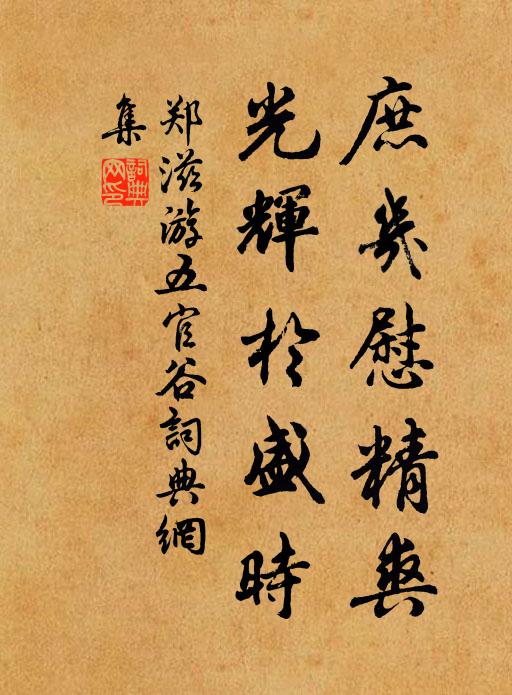 庶幾慰精爽
光輝於盛時
郑滋游五官谷詞典網
集
詞典網印